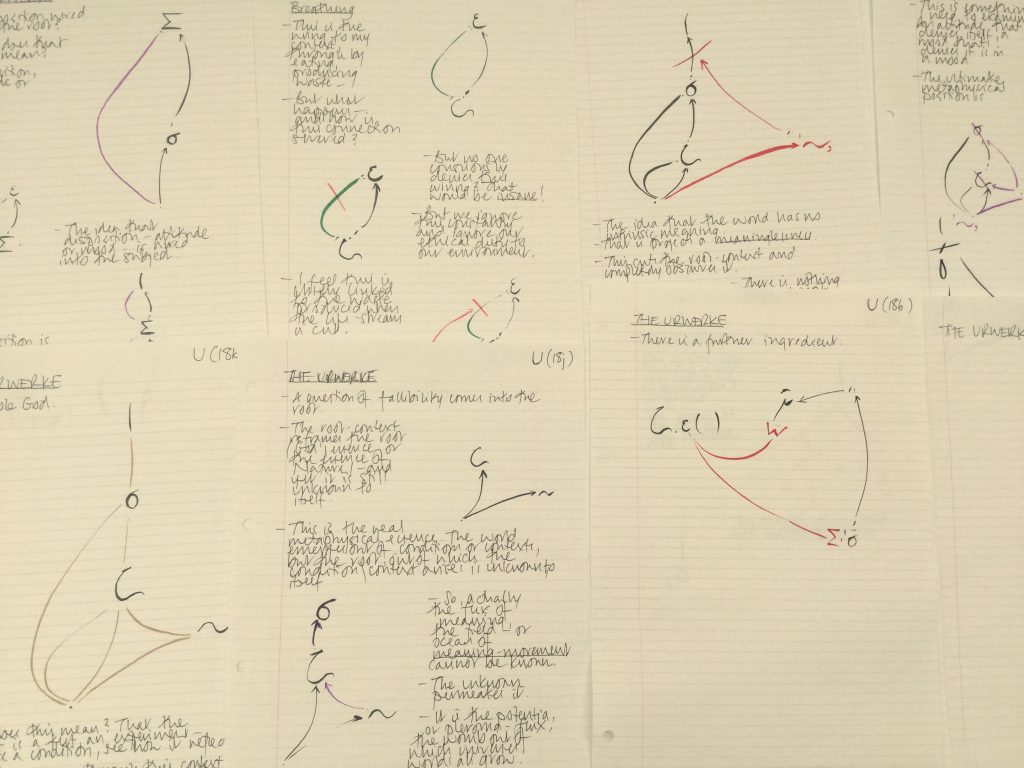 position wired
the root?
does that
mean?
Σ
σ
- The idea that
disposition - attitude
or mood - is wired
into the subject.
Σ
ε
Σ
Breathing
- This is the
wiring to my
context
through by
eating
producing
waste -
- But what
happens -
and how is
this connection
severed?
ε
- But no one
consciously
denies this
wiring? That
would be insane!
- But we ignore
this constantly
and ignore our
ethical duty to
our environment.
ε
- I feel this is
linked
to the waste
produced when
the life-stream
is cut.
ε
σ
~,
- The idea that the world has no
intrinsic meaning
- that is project a meaningless
- This cuts the root-context and
completely obscures it.
- There is nothing
- This is something
I need to examine
an attitude that
denies itself, a
mood that
denies it is in
a mood.
- The ultimate
metaphysical
position is
σ
~,
σ
U (18k
URWERKE
God.
σ
~
does this mean? That the
is a test, an experiment
a condition, see how it
this context
U (18j)
THE URWERKE
- A question of fallibility comes into the
root.
- The root-context
reframes the root
essence, or
the essence of
Nature, - and
yet it is still
unknown to
itself.
~
- This is the weak
metaphysical essence. The world
emerges out of condition or contexts,
but the root out of which the
condition/context arises is unknown to
itself
σ
~
- So, actually
the flux of
meaning
the field - or
ocean of
meaning-movement
cannot be known.
- The unknown
permeates it.
- It is the potential
or pleroma-flux,
the womb out of
which
worlds all grow.
U (18b)
THE URWERKE
- There is a further ingredient.
ε ( )
Σ:ö
THE URWERK